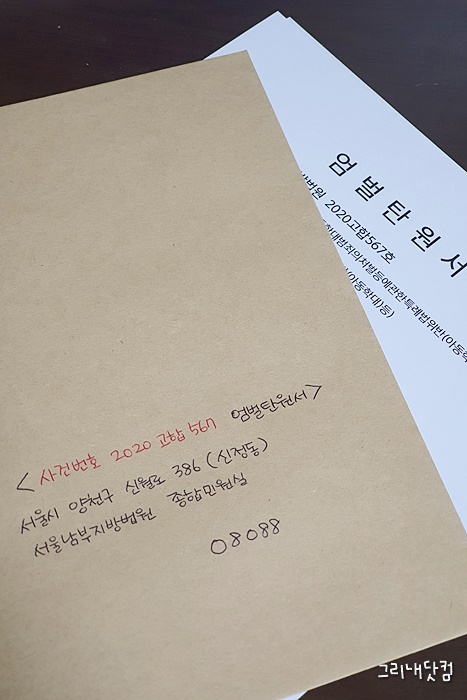 엄벌탄원서
법원 2020고합567호
학대범죄의처벌등에관한특례법위반(아동학
(아동학대)등)
<사건번호 2020 고합 567 엄벌탄원서>
서울시 양천구 신월로 386 (신정동)
서울남부지방법원 종합민원실
08088
그리내닷컴